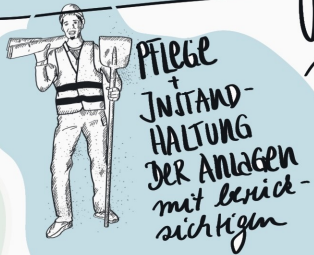 PFLEGE
+
INSTAND-
HALTUNG
DER ANLAGEN
mit berück-
sichtigen